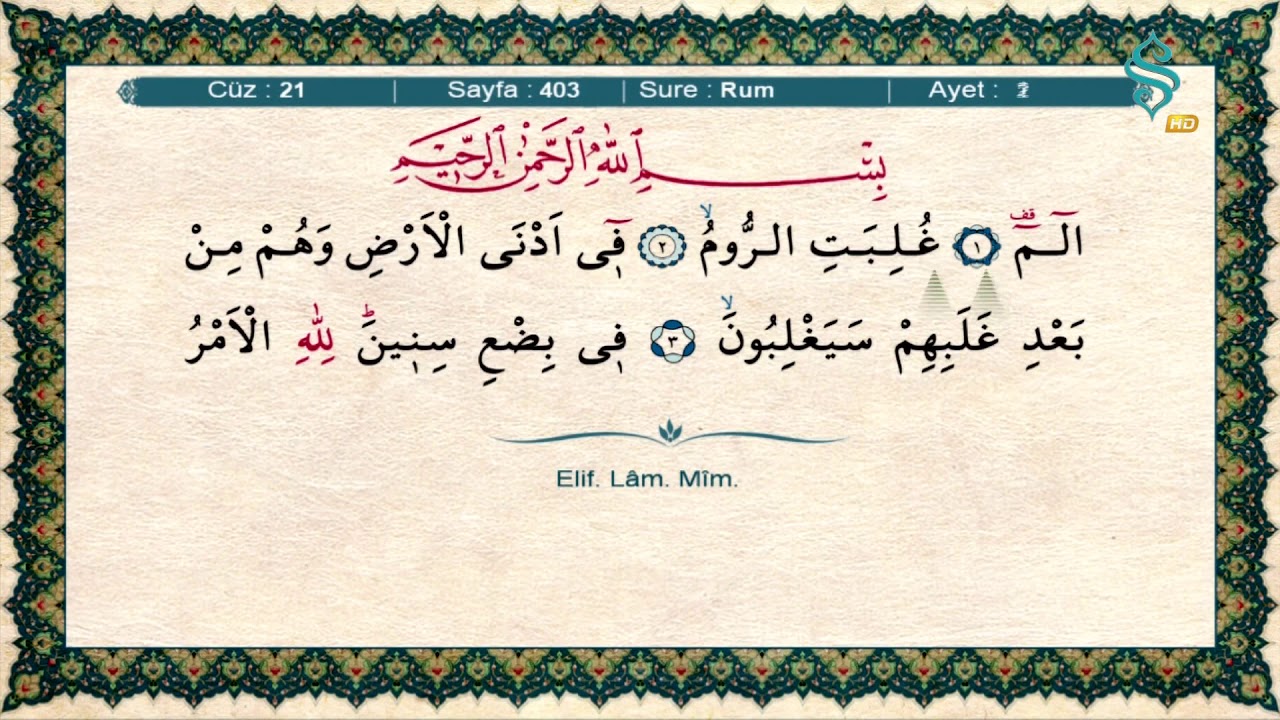 Cüz : 21 | Sayfa : 403 | Sure : Rum | Ayet :
HD
بِسْمِ اللّٰهِ الرَّحْمٰنِ الرَّحٖيمِ
الٓـمٓۚ قف ﴿١﴾ غُلِبَتِ الرُّومُۙ ﴿٢﴾ فٖٓي اَدْنَى الْاَرْضِ وَهُمْ مِنْ
بَعْدِ غَلَبِهِمْ سَيَغْلِبُونَۙ ﴿٣﴾ فٖي بِضْعِ سِنٖينَؕ لِلّٰهِ الْاَمْرُ
Elif. Lâm. Mîm.